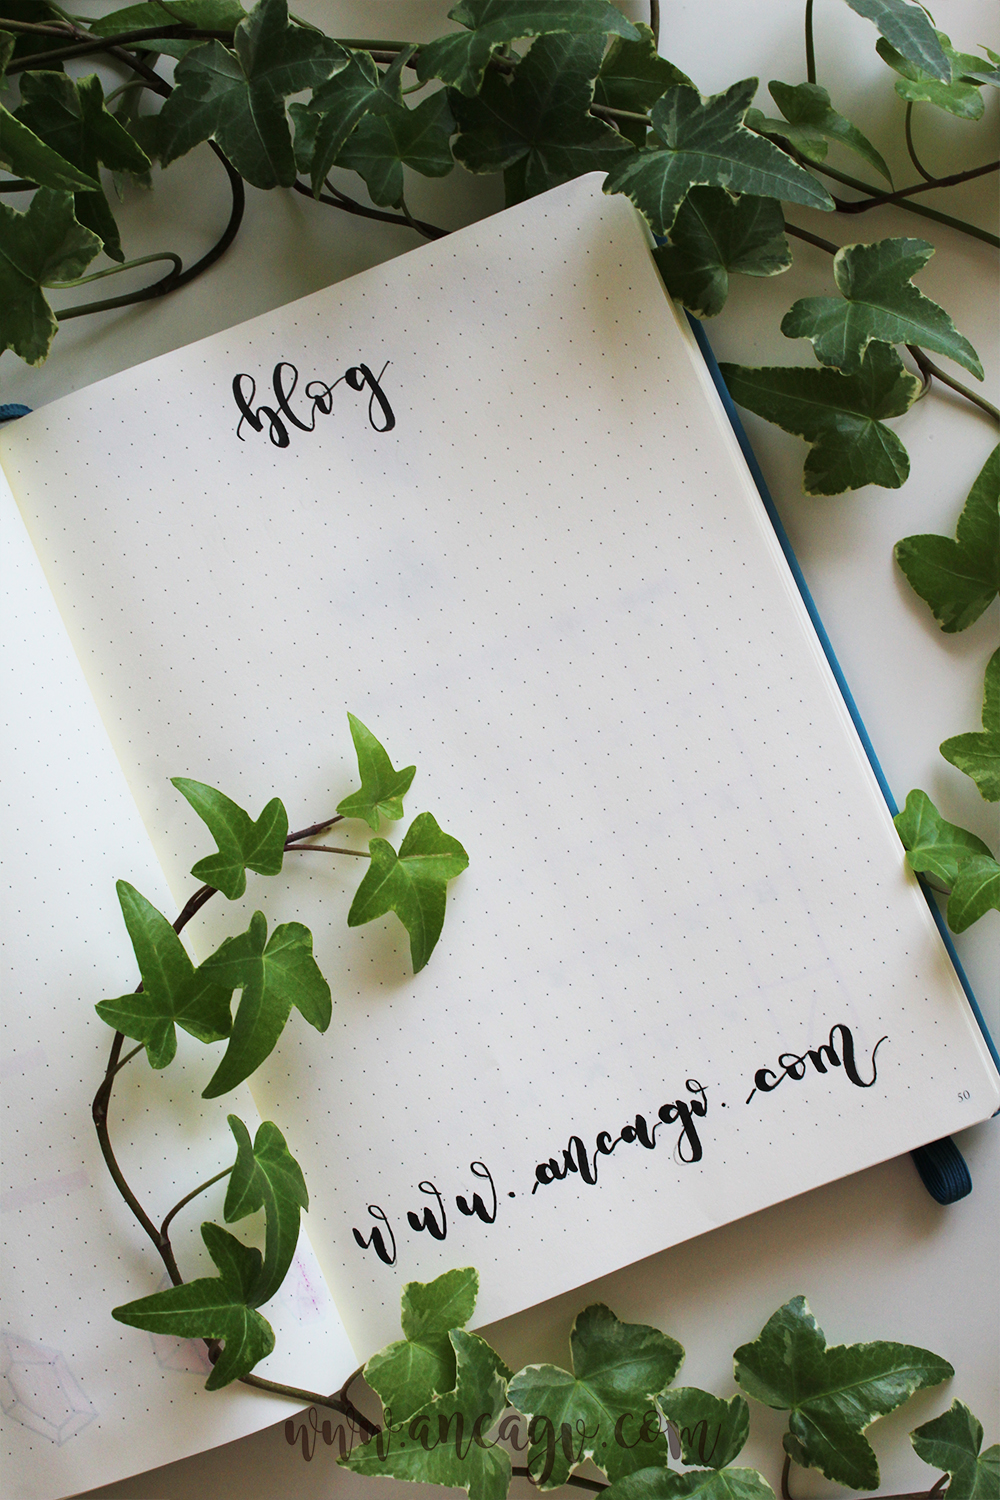 blog
www.ancagv.com
50
www.ancagv.com